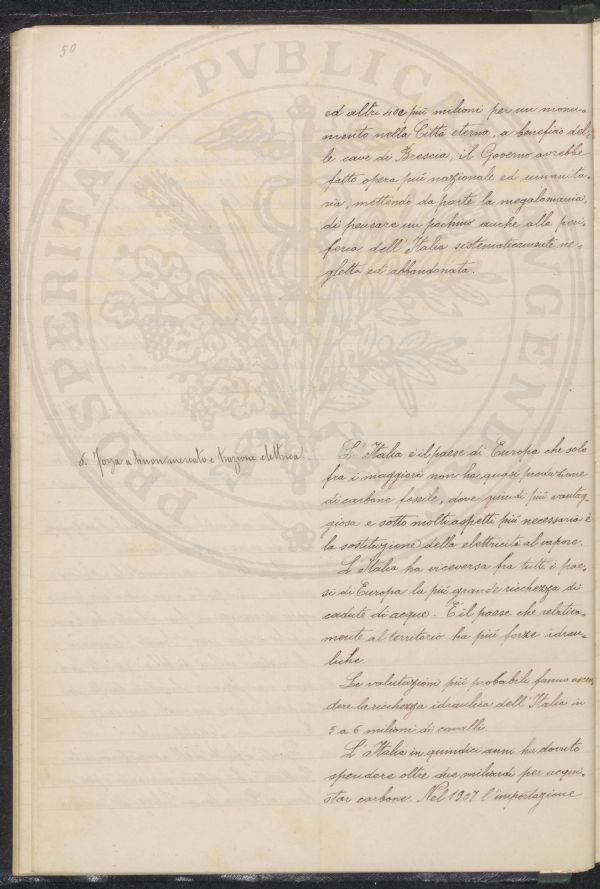 50
ed altri 400 più milioni per un monu-
mento nella Città eterna, a benefizio del-
le cave di Brescia, il Governo avrebbe
fatto opera più nazionale ed umanita-
ria, mettendo da parte la megalomania,
di pensare un pochino anche alla peri-
feria dell'Italia sistematicamente ne-
gletta ed abbandonata.
6. Forza a buon mercato e trazione elettrica
L'Italia è il paese di Europa che solo
fra i maggiori non ha quasi produzione
di carbone fossile, dove quindi più vantag-
giosa e sotto molti aspetti più necessaria è
la sostituzione della elettricità al vapore.
L'Italia ha viceversa fra tutti i pae-
si di Europa la più grande ricchezza di
cadute di acque. È il paese che relativa-
mente al territorio ha più forze idrau-
liche.
Le valutazioni più probabili fanno ascen-
dere la ricchezza idraulica dell'Italia in
5 a 6 milioni di cavalli.
L'Italia in quindici anni ha dovuto
spendere oltre due miliardi per acqui-
star carbone. Nel 1907 l'importazione
PROSPERITATI PVBLICAE AVGENDAE